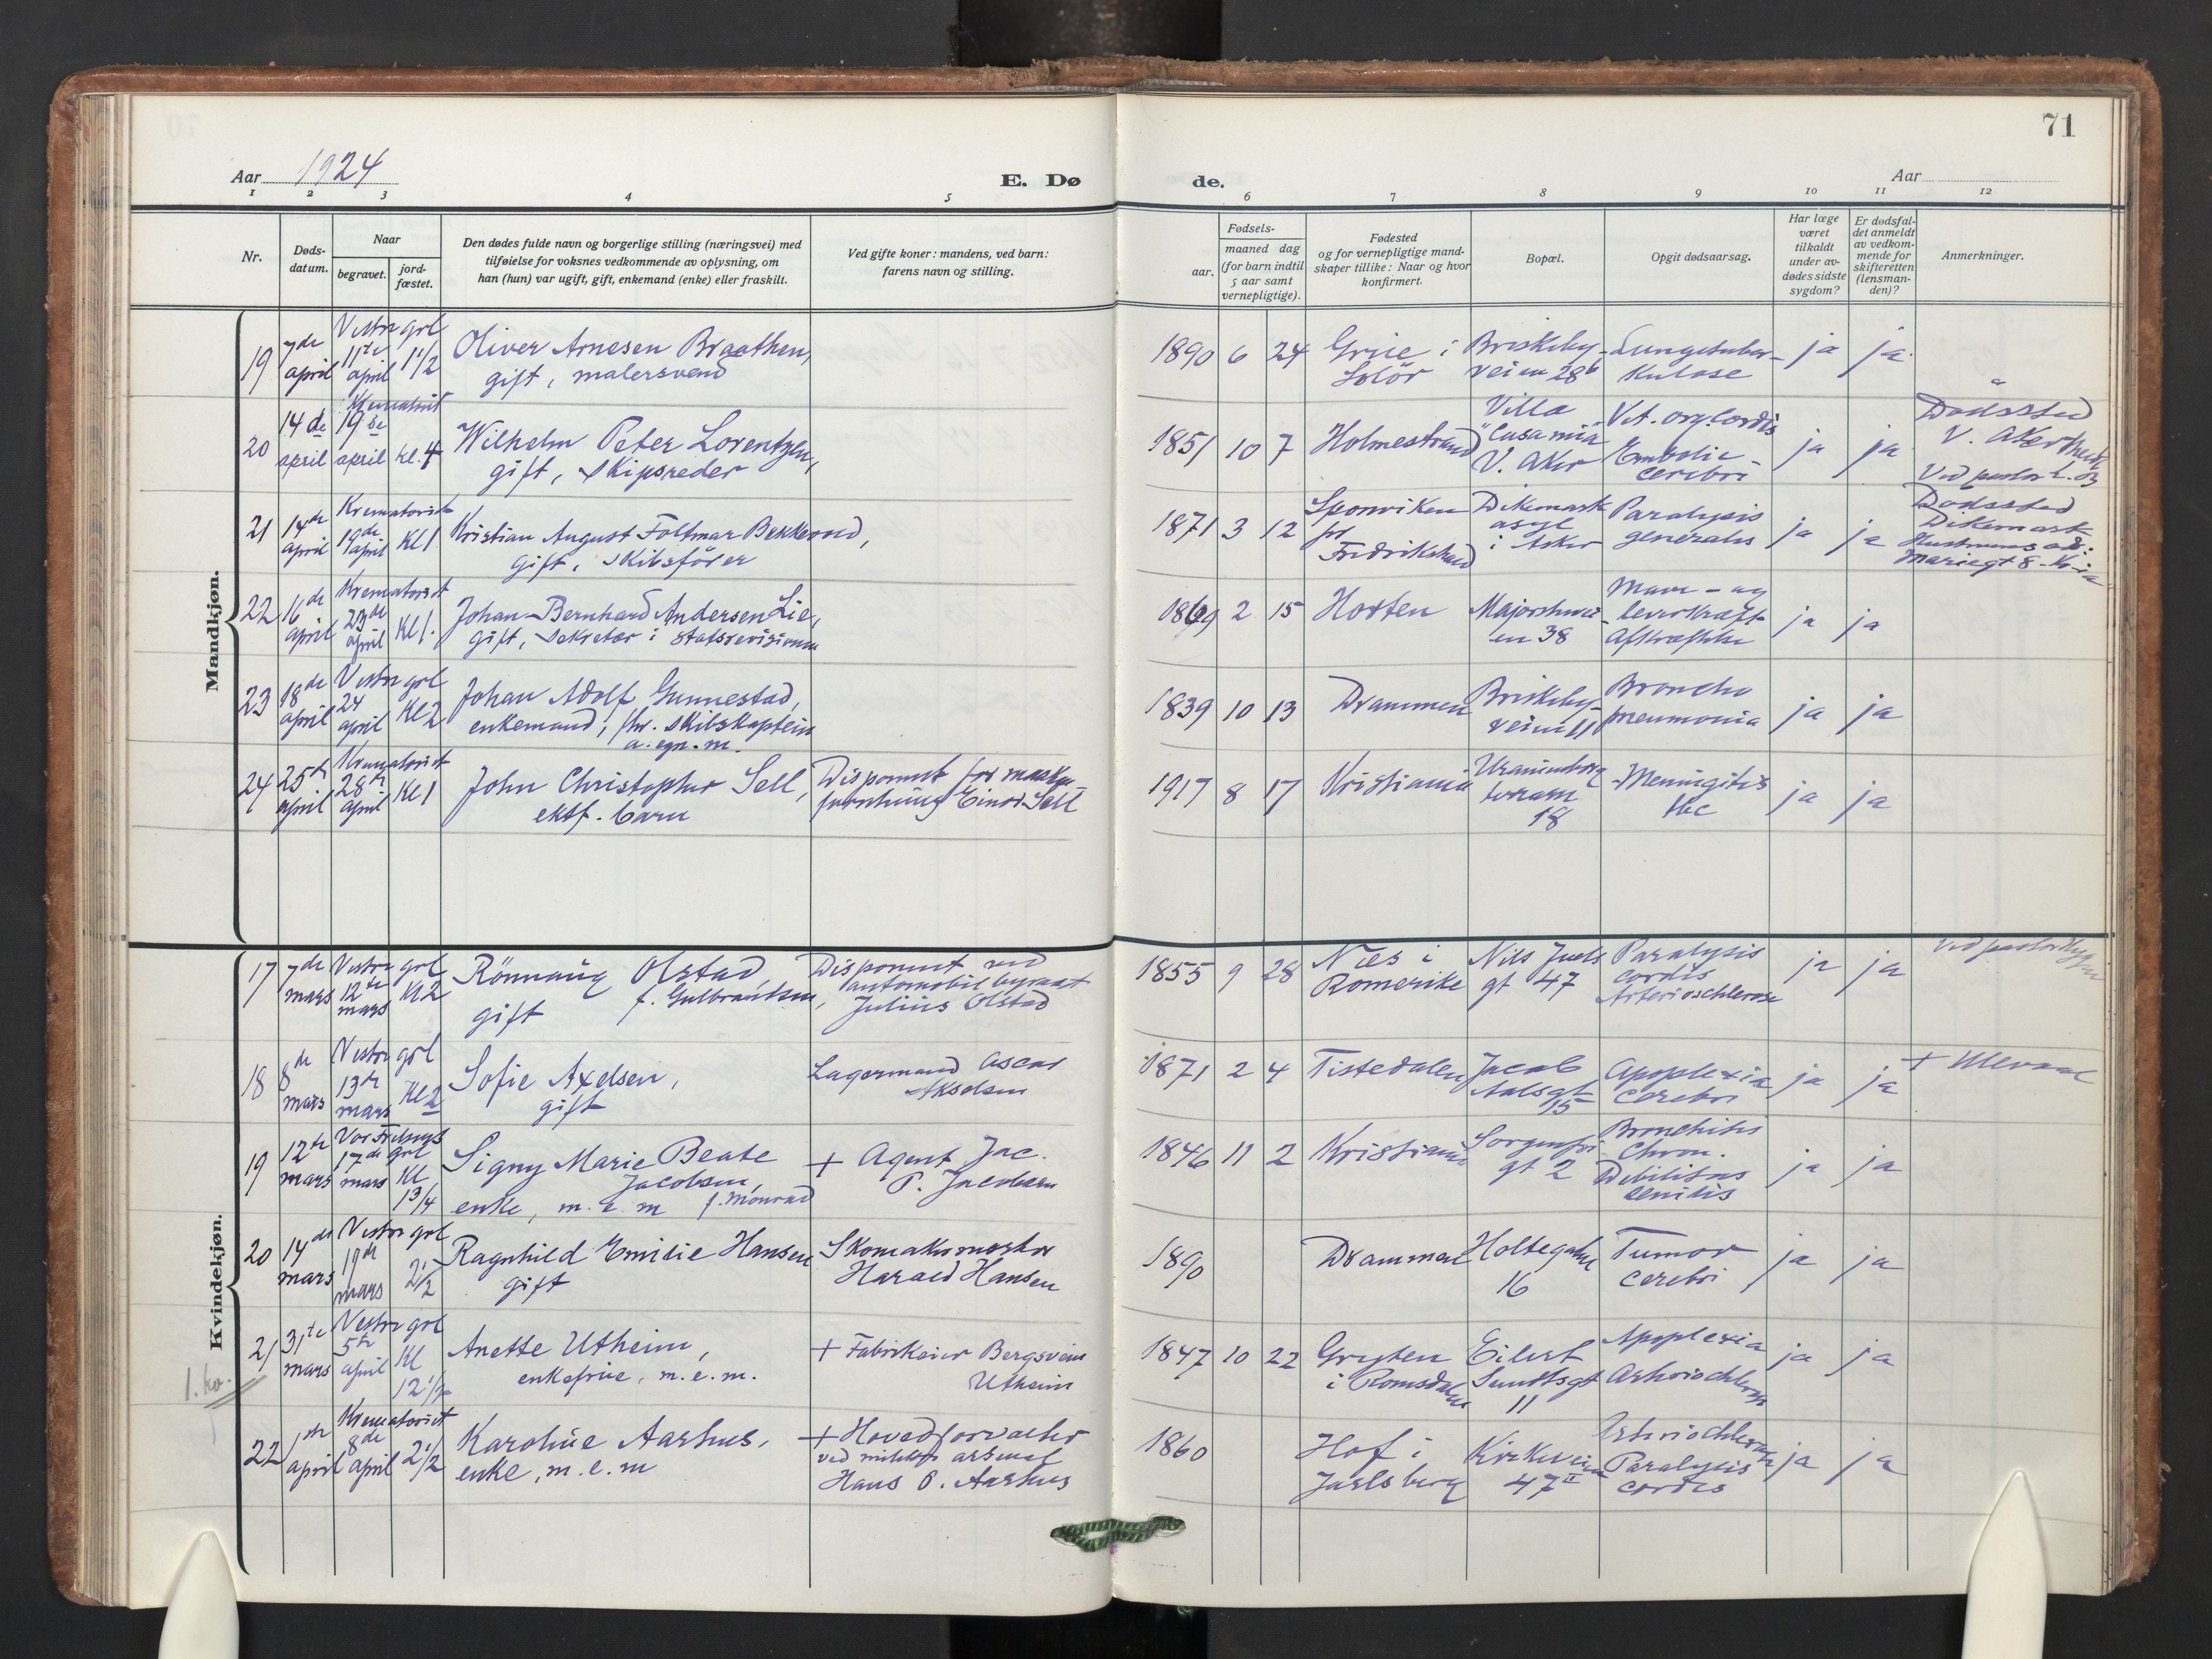 71
Aar 1924
E. Dø
de.
Aar
1 2 3 4 5 6 7 8 9 10 11 12
Nr.
Døds-
datum.
Naar
begravet.
jord-
fæstet.
Den dødes fulde navn og borgerlige stilling (næringsvei) med
tilføielse for voksnes vedkommende av oplysning, om
han (hun) var ugift, gift, enkemand (enke) eller fraskilt.
Ved gifte koner: mandens, ved barn:
farens navn og stilling.
Fødsels-
aar.
maaned dag
(for barn indtil
5 aar samt
vernepligtige).
Fødested
og for vernepligtige mand-
skaper tillike: Naar og hvor
konfirmert.
Bopæl.
Opgit dødsaarsag.
Har læge
været
tilkaldt
under av-
dødes sidste
sygdom?
Er dødsfal-
det anmeldt
av vedkom-
mende for
skifteretten
(lensman-
den)?
Anmerkninger.
Mandkjøn.
19 7de april Vestre grl 11te april 1 1/2
Oliver Arnesen Braathen,
gift, malersvend
1890 6 24 Grue i Solör Briskeby-veien 28b Lungetuber-kulose ja ja
20 14de april Krematoriet 19de april kl. 4
Wilhelm Peter Lorentzen,
gift, skipsreder
1851 10 7 Holmestrand Villa "Casa mia" V. Aker Vit. org. Cordis Embolie cerebri ja ja
Dødssted
V. Aker
Ved pastor
21 14de april Krematoriet 19de april Kl 1
Kristian August Foltmar Bekkevold,
gift, skibsfører
1871 3 12 Sponviken Fredrikshald Dikemark asyl i Asker Paralysis generalis ja ja
Dødssted
Dikemark
Hustruens adr:
Mariegt 8 Kr.a
22 16de april Krematoriet 23de april Kl 1.
Johan Bernhard Andersen Lie,
gift, sekretær i statsrevisionen
1869 2 15 Horten Majorstuvei-en 38 Mave- og leverkræft- Afkræftelse ja ja
23 18de april Vestre grl 24 april Kl 2
Johan Adolf Gunnestad,
enkemand, fhv. skibskaptein
a. egn. m.
1839 10 13 Drammen Briskeby-veien 11 Broncho pneumonia ja ja
24 25te april Krematoriet 28te april Kl 1
John Christopher Sell,
ektf. barn
Disponent for maskin-
forretning Einar Sell
1917 8 17 Kristiania Uranienborg terrasse 18 Meningitis tbc ja ja
Kvindekjøn.
17 7de mars Vestre grl 12te mars Kl 2
Rönnaug Olstad,
f. Gulbrandsen,
gift
Disponent ved
automobilbyraat
Julius Olstad
1855 9 28 Næs i Romerike Nils Juels gt 47 Paralysis cordis Arterioschlerose ja ja
Ved pastor
18 8de mars Vestre grl 13te mars Kl 2
Sofie Axelsen,
gift
Lagermand Oscar
Akselsen
1871 2 4 Tistedalen Jacob Aalsgt 15 Apoplexia Cerebri ja ja
+ Ullevaal
19 12te mars Vor Frelsers grl 17de mars Kl 1 3/4
Signy Marie Beate
Jacobsen,
enke, m. e. m f. Monrad
+ Agent Jac.
P. Jacobsen
1846 11 2 Kristiania Sorgenfri gt 2 Bronchitis Chron. Debilitas senilis ja ja
20 14de mars Vestre grl 19de mars 2 1/2
Ragnhild Emilie Hansen
gift
Skomakermester
Harald Hansen
1890 Drammen Holtegaten 16 Tumor cerebri ja ja
21 31te mars Vestre grl 5te april Kl 12 1/2
Anette Utheim,
enkefrue, m. e. m.
+ Fabrikeier Bergsvein
Utheim
1847 10 22 Gryten i Romsdalen Eilert Sundtsgt 11 Apoplexia Arterioschlerose ja ja
1. kv.
22 1ste april Krematoriet 8de april 2 1/2
Karoline Aarhus,
enke, m. e. m
+ Hovedforvalter
ved arsenal
Hans O. Aarhus
1860 Hof i Jarlsberg Kirkeveien 47 II Arterioschlerose Paralysis cordis ja ja